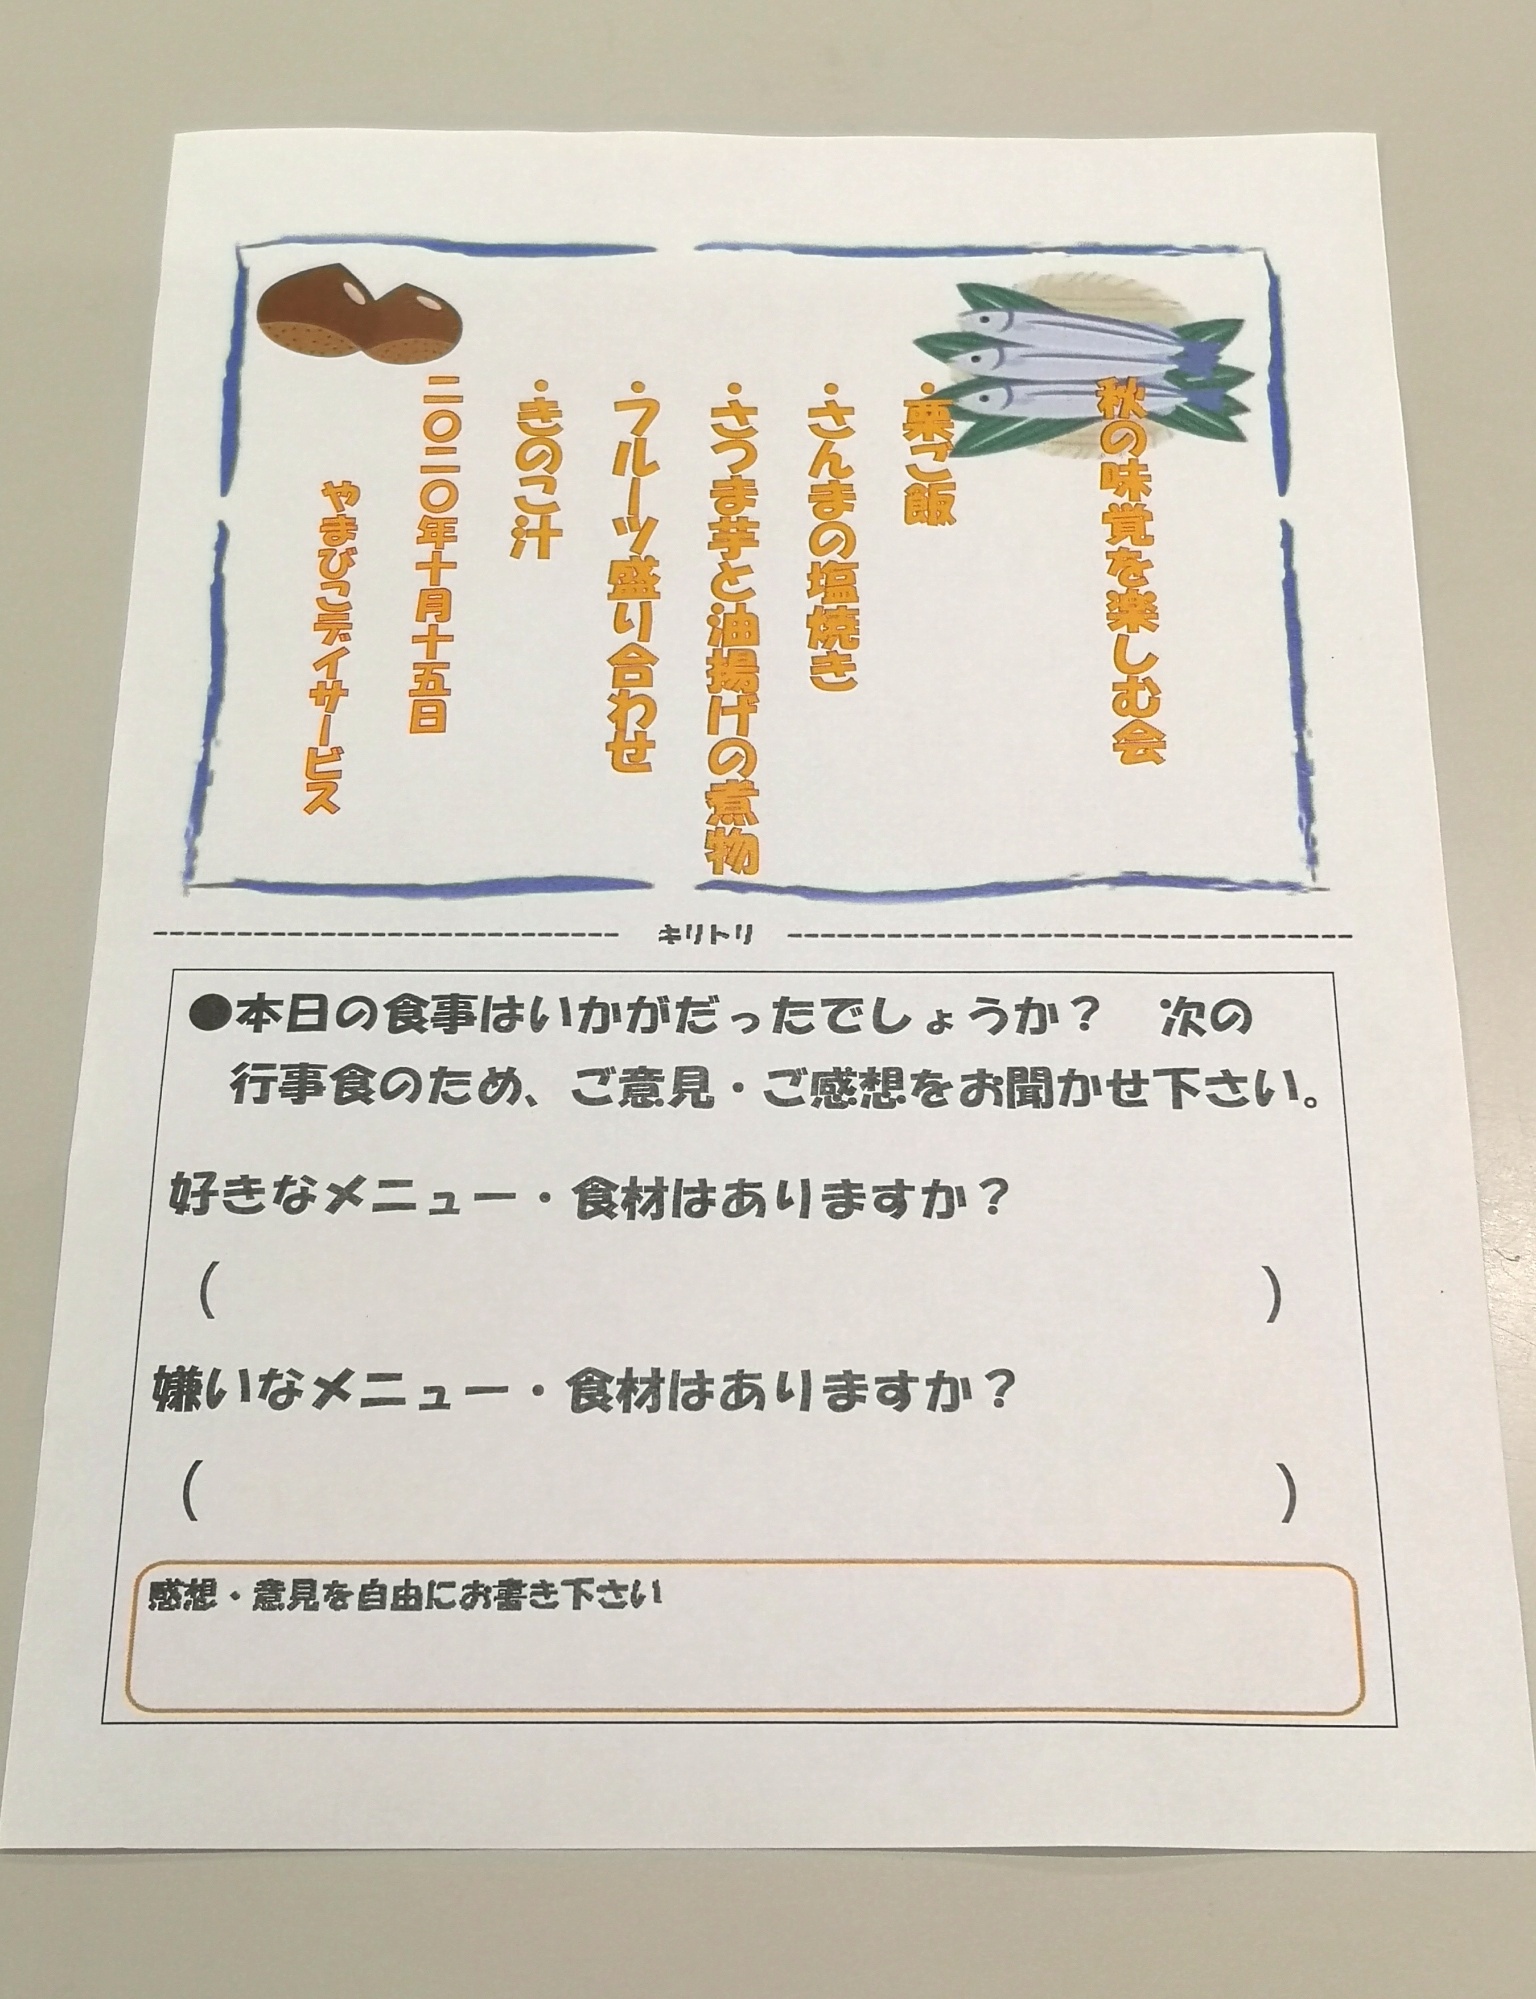 秋の味覚を楽しむ会
・栗ご飯
・さんまの塩焼き
・さつま芋と油揚げの煮物
・フルーツ盛り合わせ
・きのこ汁
二〇二〇年十月十五日
やまびこデイサービス
キリトリ
●本日の食事はいかがだったでしょうか？　次の
行事食のため、ご意見・ご感想をお聞かせ下さい。
好きなメニュー・食材はありますか？
(　　　　　　　　　　)
嫌いなメニュー・食材はありますか？
(　　　　　　　　　　)
感想・意見を自由にお書き下さい